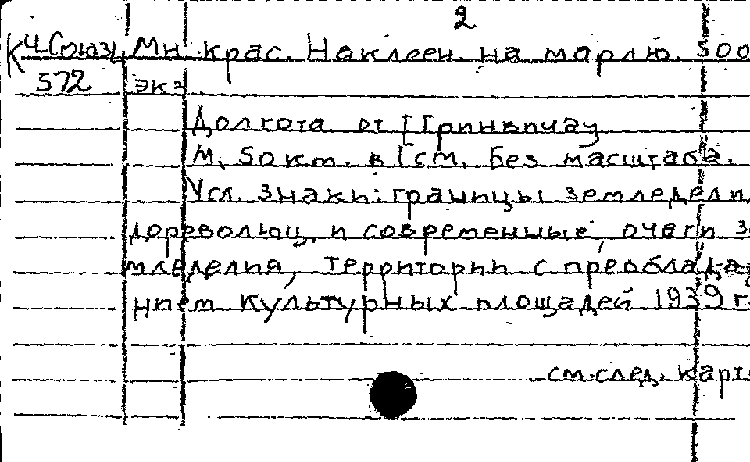 2
К Ч(Союз) Мн. крас. Наклеен. на марлю. 500
572 экз.
Долгота от [Гринвича]
М. 50км. в 1см. Без масштаба.
Усл. знаки: границы земледелия
дореволюц. и современные, очаги зе
мледелия, территории с преоблада
нием культурных площадей 1939 г.
см. след. карт.